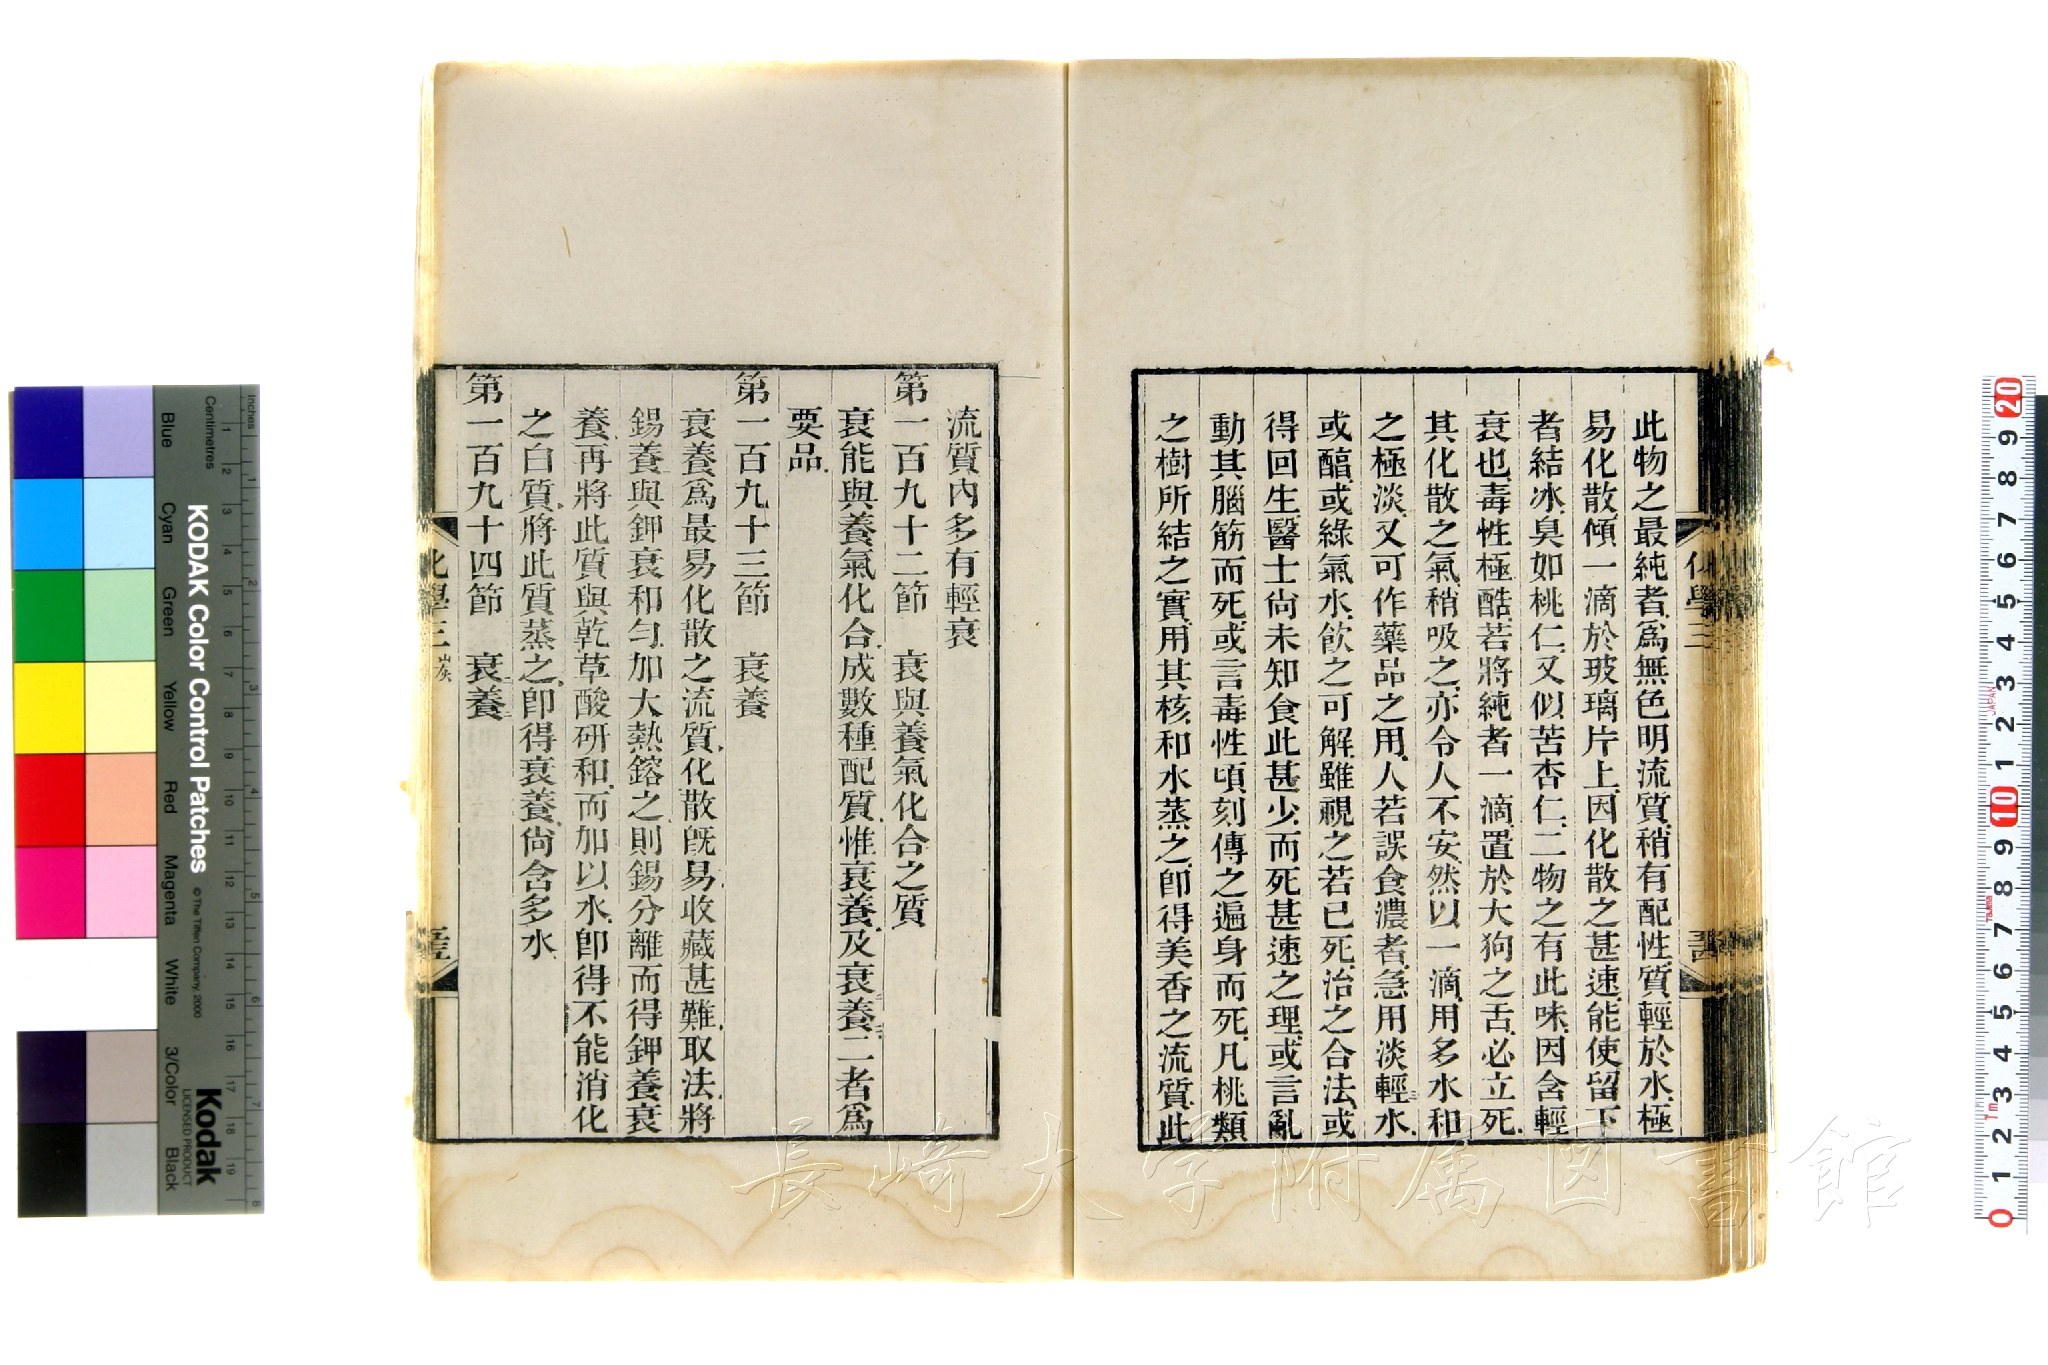 此物之最純者爲無色明流質稍有配性質輕於水極
易化散傾一滴於玻璃片上因化散之甚速能使留下
者結冰臭如桃仁又似苦杏仁二物之有此味因含輕
衰也毒性極酷若將純者一滴置於大狗之舌必立死
其化散之氣稍吸之亦令人不安然以一滴用多水和
之極淡又可作藥品之用人若誤食濃者急用淡輕水
或醕或綠氣水飲之可解雖視之若已死治之合法或
得回生醫士尚未知食此甚少而死甚速之理或言亂
動其腦筋而死或言毒性頃刻傳之遍身而死凡桃類
之樹所結之實用其核和水蒸之卽得美香之流質此
流質內多有輕衰
第一百九十二節 衰與養氣化合之質
衰能與養氣化合成數種配質惟衰養及衰養二者爲
要品
第一百九十三節 衰養
衰養爲最易化散之流質化散旣易收藏甚難取法將
錫養與鉀衰和勻加大熱鎔之則錫分離而得鉀養衰
養再將此質與乾草酸研和而加以水卽得不能消化
之白質將此質蒸之卽得衰養尙含多水
第一百九十四節 衰養
化學三
長崎大学附属図書館
KODAK Color Control Patches
© The Tiffen Company, 2000
Kodak
LICENSED PRODUCT
Inches
Centimetres
Blue
Cyan
Green
Yellow
Red
Magenta
White
3/Color
Black
JAPAN